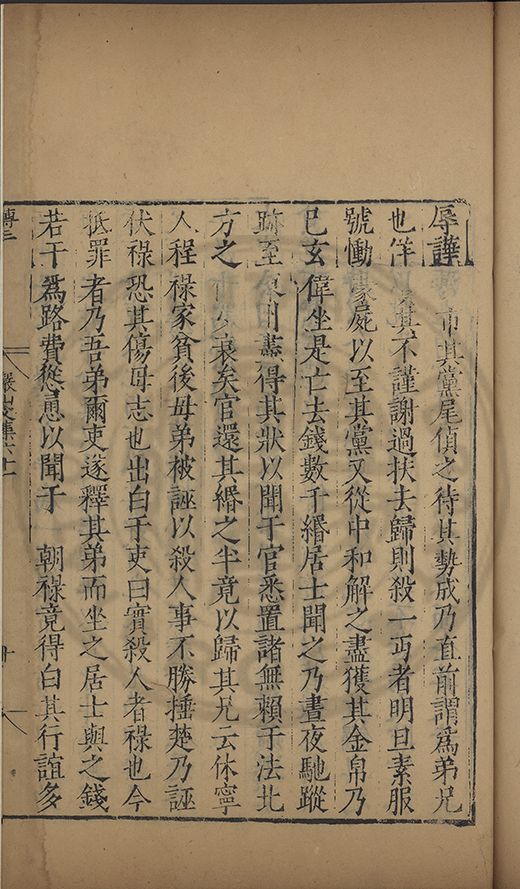 辱譁 市其黨尾偵之待其勢成乃直前謂爲弟兄
也佯 其不謹謝過扶去歸則殺一丐者明旦素服
號慟 屍以至其黨又從中和解之盡獲其金帛乃
已玄偉坐是亡去錢數千緡居士聞之乃晝夜馳蹤
跡至 州盡得其狀以聞于官悉置諸無賴于法北
方之 衰矣官還其緡之半竟以歸其兄云休寧
人程祿家貧後母弟被誣以殺人事不勝捶楚乃誣
伏祿恐其傷母志也出白于吏曰實殺人者祿也今
抵罪者乃吾弟爾吏遂釋其弟而坐之居士與之錢
若干爲路費慫慂以聞于 朝祿竟得白其行誼多